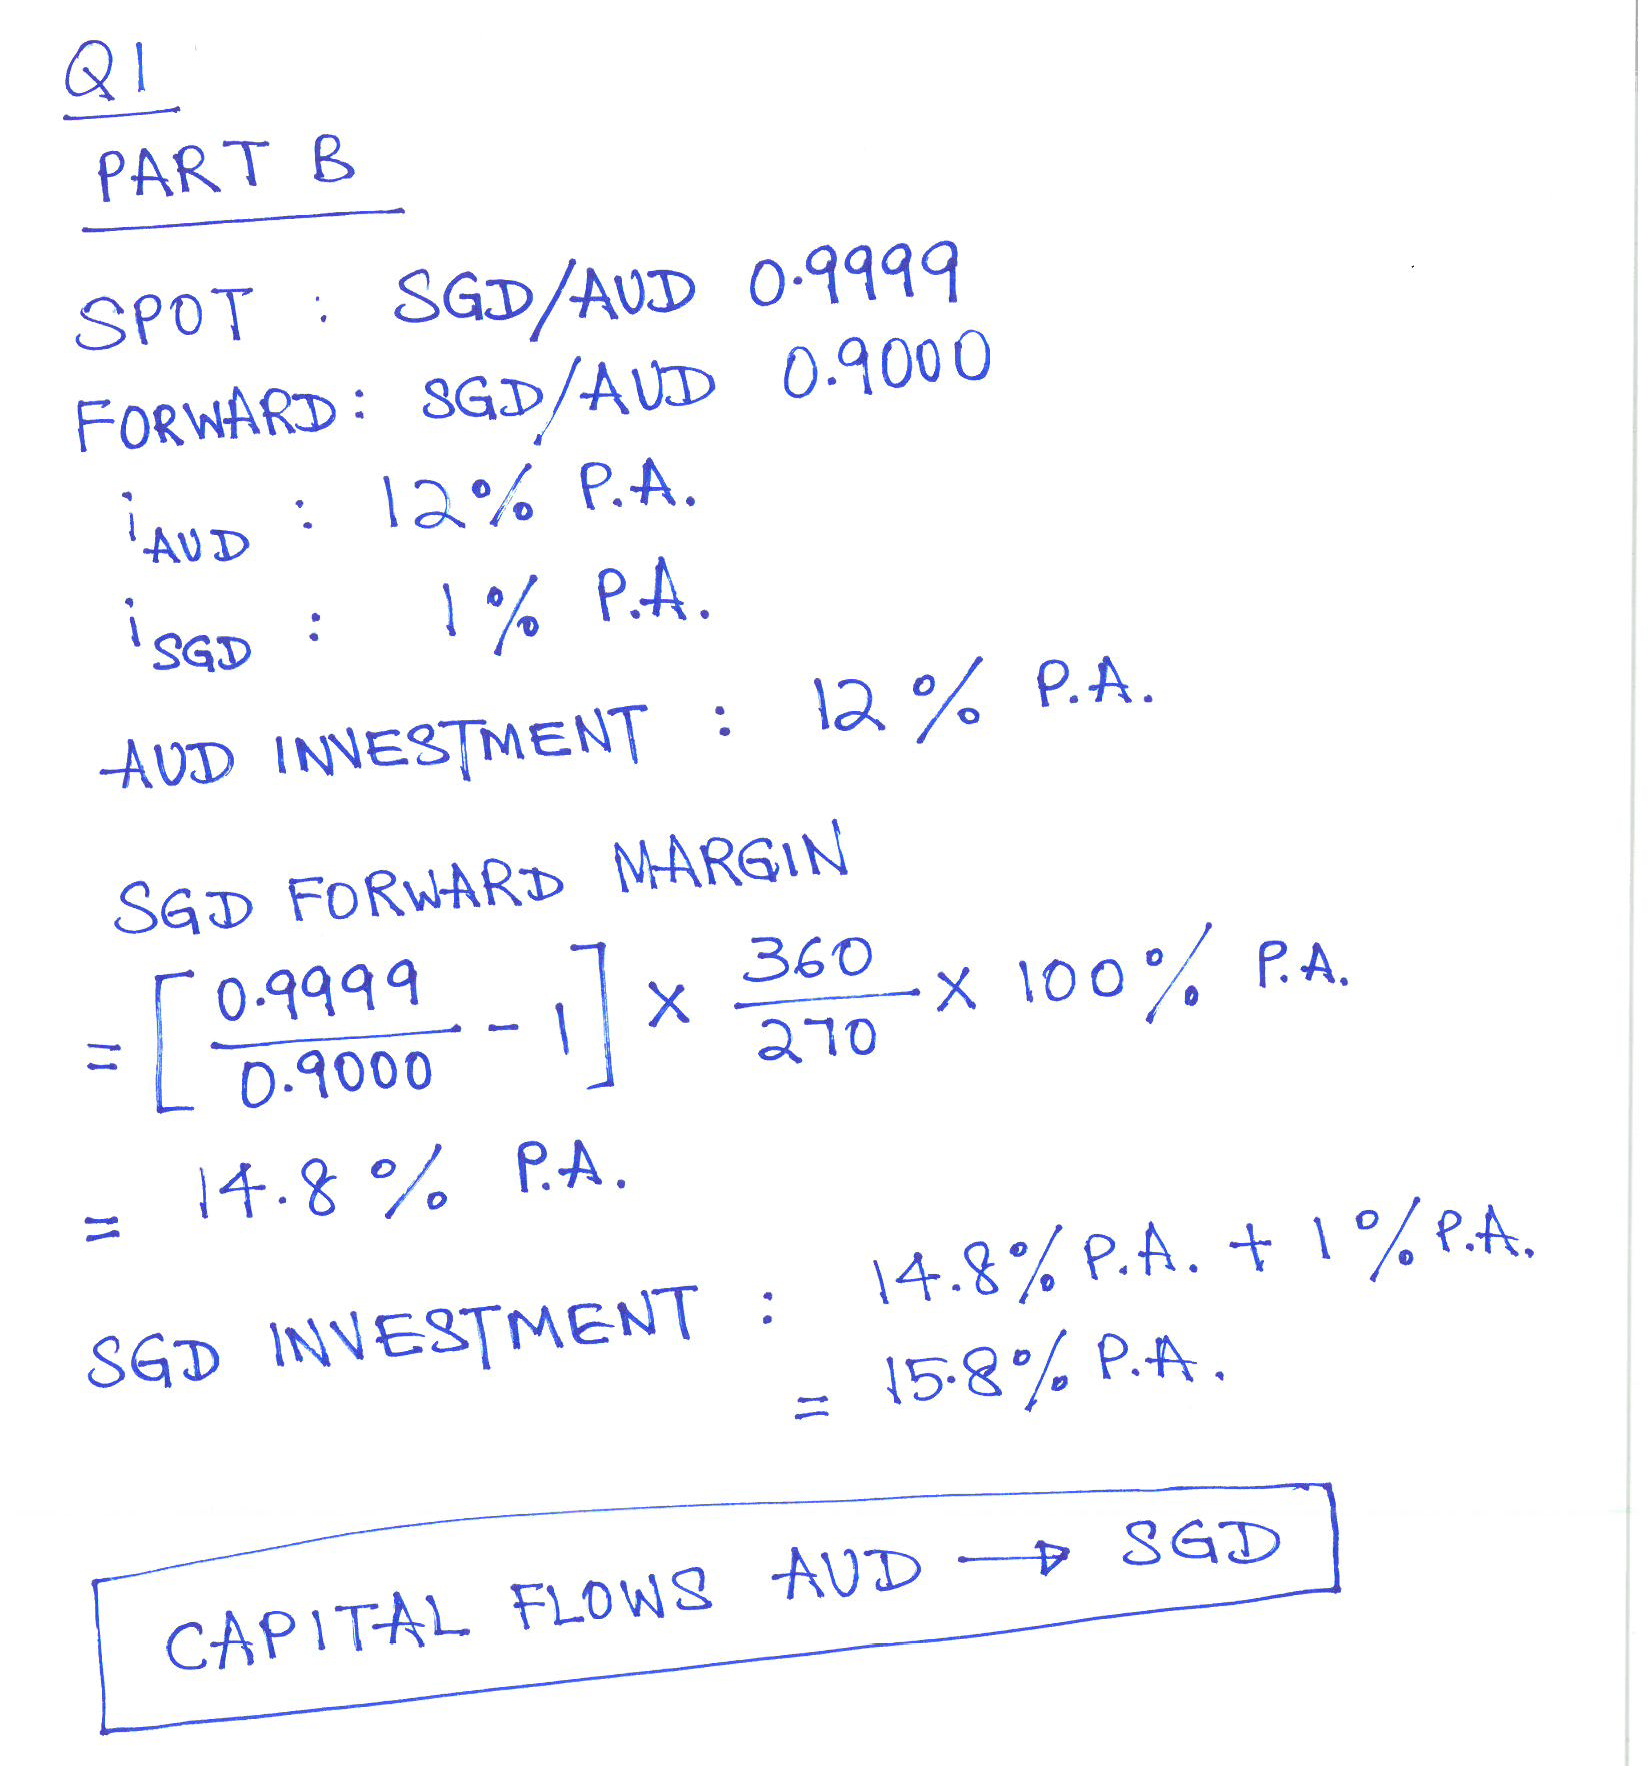 Q1
PART B
SPOT : SGD/AUD 0.9999
FORWARD: SGD/AUD 0.9000
iAUD : 12% P.A.
iSGD : 1% P.A.
AUD INVESTMENT : 12% P.A.
SGD FORWARD MARGIN
= [0.9999/0.9000 - 1] x 360/270 x 100% P.A.
= 14.8% P.A.
SGD INVESTMENT : 14.8% P.A. + 1% P.A.
= 15.8% P.A.
CAPITAL FLOWS AUD → SGD